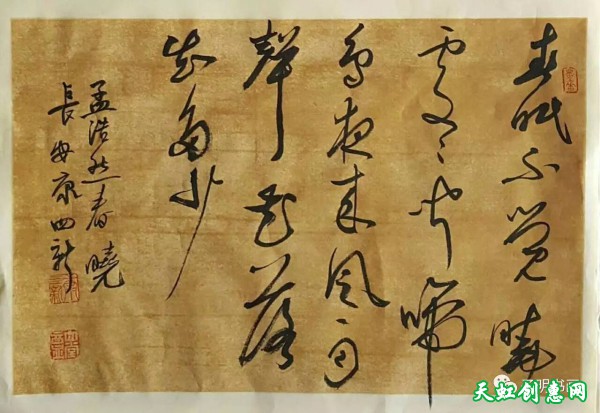 春眠不觉曉
處々闻啼
鸟夜来风雨
聲花落
知多少
孟浩然春曉
長安康四新
天虹创惠网